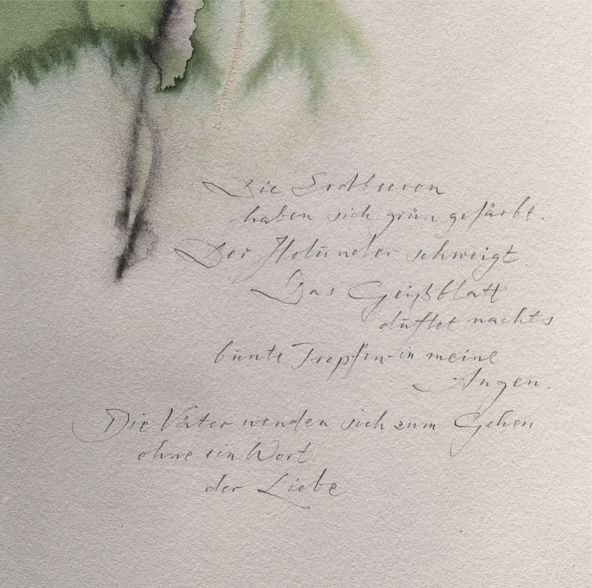 Die Erdbeeren
haben sich grün gefärbt.
Der Holunder schweigt.
Das Geißblatt
duftet nachts
bunte Tropfen in meine
Augen.
Die Väter wenden sich zum Gehen
ohne ein Wort
der Liebe